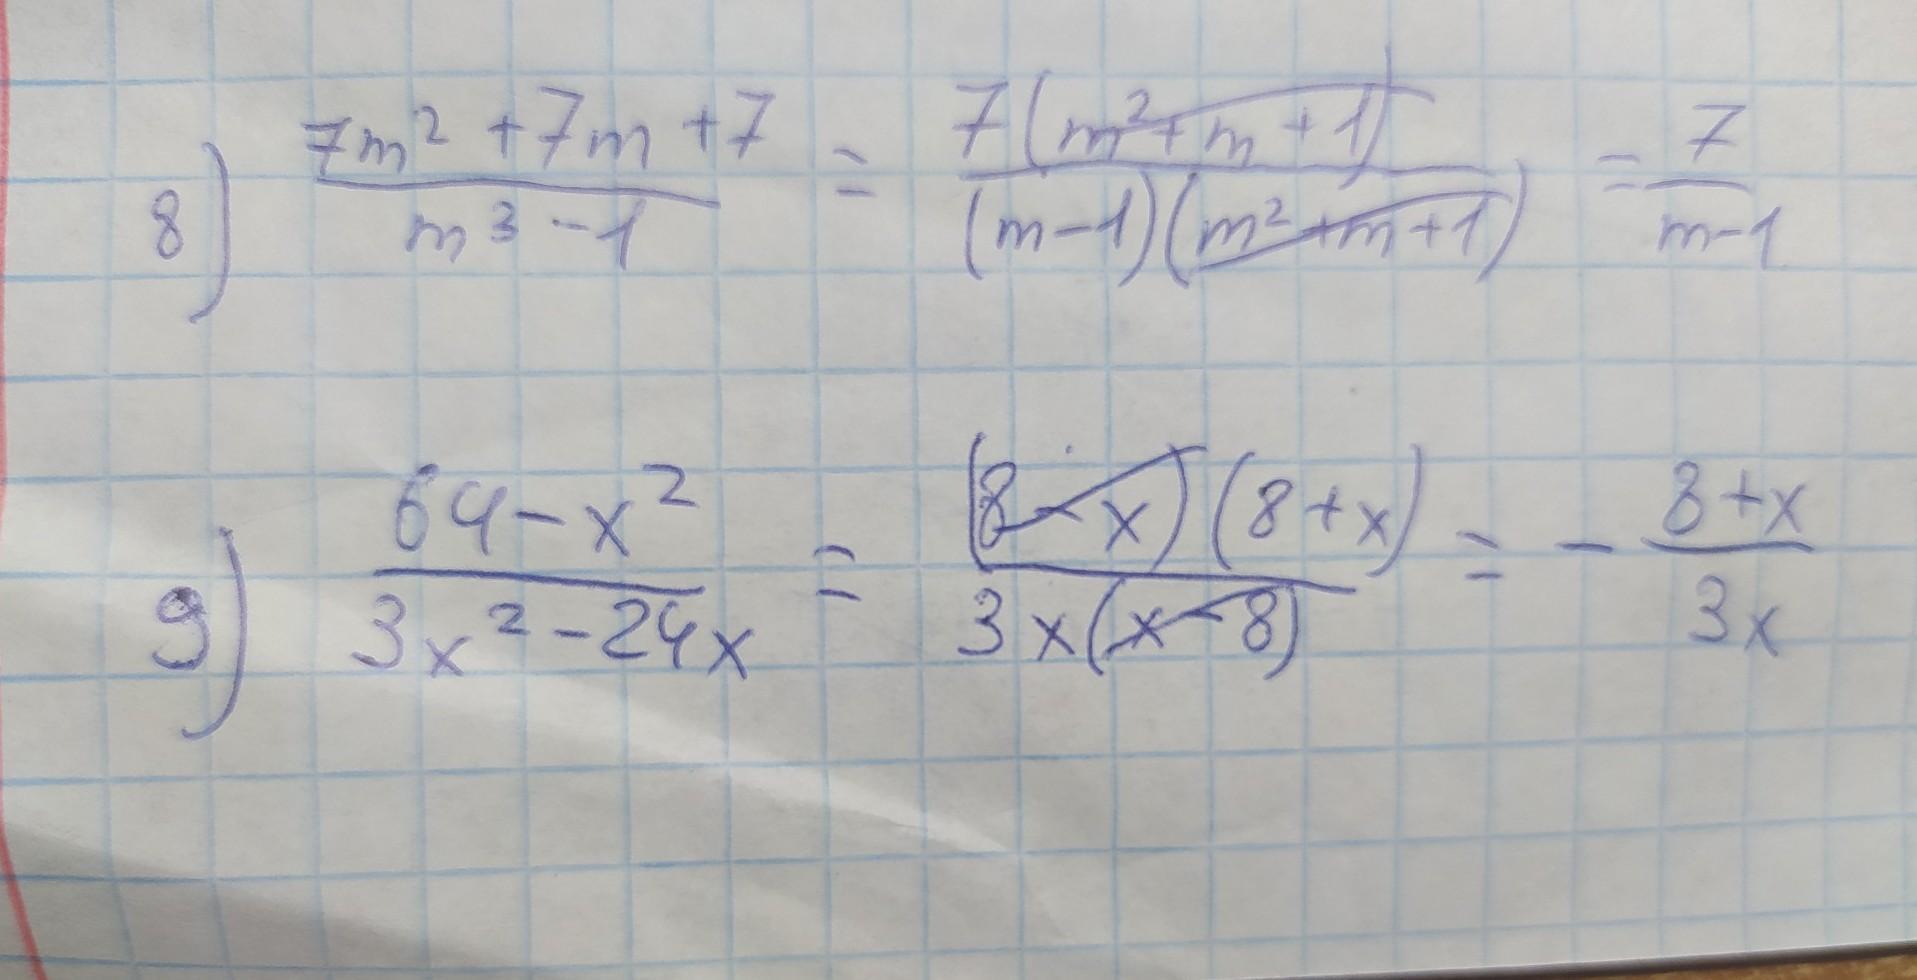 8) (7m² + 7m + 7)/(m³ - 1) = (7(m² + m + 1))/((m-1)(m² + m + 1)) = 7/(m-1)
9) (64 - x²)/(3x² - 24x) = ((8 - x)(8 + x))/(3x(x - 8)) = - (8 + x)/(3x)